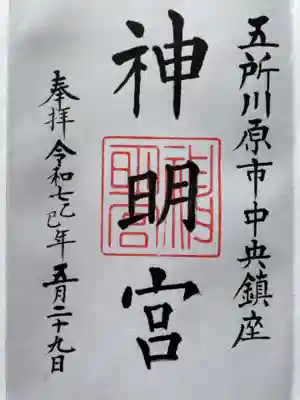 五所川原市中央鎮座
神明宮
奉拝 令和七乙巳年 五月二十九日